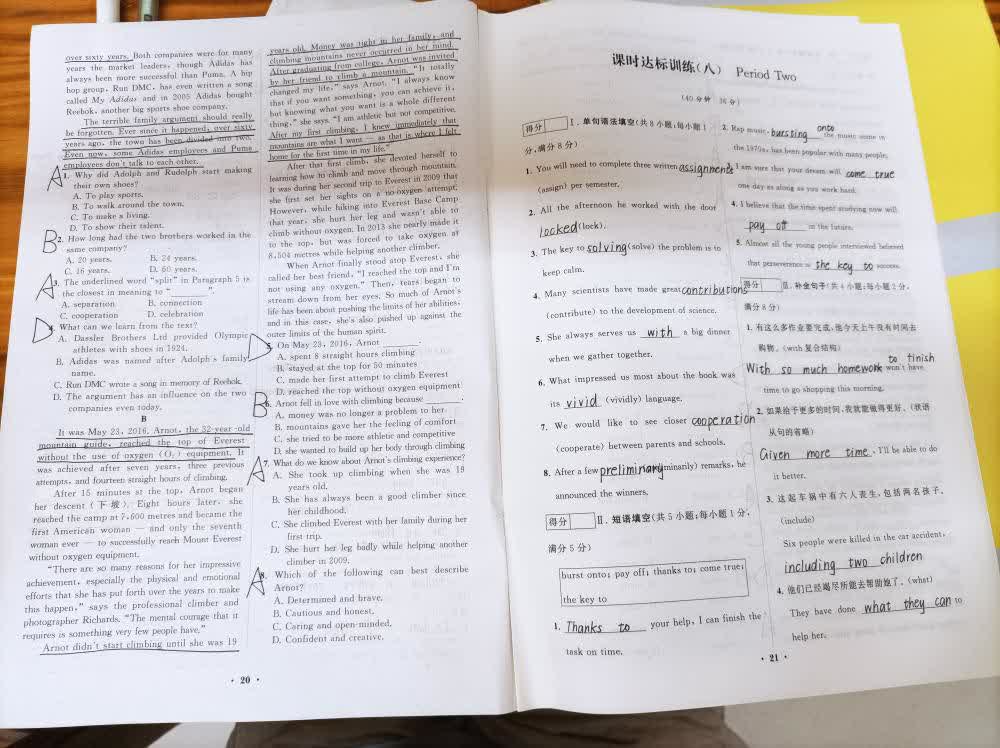 over sixty years. Both companies were for many
years the market leaders, though Adidas has
always been more successful than Puma. A hip
hop group, Run DMC, has even written a song
called My Adidas and in 2005 Adidas bought
Reebok, another big sports shoe company.
The terrible family argument should really
be forgotten. Ever since it happened, over sixty
years ago, the town has been divided into two.
Even now, some Adidas employees and Puma
employees don't talk to each other.
A 1. Why did Adolph and Rudolph start making
their own shoes?
A. To play sports.
B. To walk around the town.
C. To make a living.
D. To show their talent.
B 2. How long had the two brothers worked in the
same company?
A. 20 years. B. 24 years.
C. 16 years. D. 60 years.
A 3. The underlined word "split" in Paragraph 5 is
the closest in meaning to "________".
A. separation B. connection
C. cooperation D. celebration
D 4. What can we learn from the text?
A. Dassler Brothers Ltd provided Olympic
athletes with shoes in 1924.
B. Adidas was named after Adolph's family
name.
C. Run DMC wrote a song in memory of Reebok.
D. The argument has an influence on the two
companies even today.
B
It was May 23, 2016. Arnot, the 32-year-old
mountain guide, reached the top of Everest
without the use of oxygen (O₂) equipment. It
was achieved after seven years, three previous
attempts, and fourteen straight hours of climbing.
After 15 minutes at the top, Arnot began
her descent (下坡). Eight hours later, she
reached the camp at 7,600 metres and became the
first American woman — and only the seventh
woman ever — to successfully reach Mount Everest
without oxygen equipment.
"There are so many reasons for her impressive
achievement, especially the physical and emotional
efforts that she has put forth over the years to make
this happen," says the professional climber and
photographer Richards. "The mental courage that it
requires is something very few people have."
Arnot didn't start climbing until she was 19
years old. Money was tight in her family, and
climbing mountains never occurred in her mind.
After graduating from college, Arnot was invited
by her friend to climb a mountain. "It totally
changed my life," says Arnot. "I always know
that if you want something, you can achieve it,
but knowing what you want is a whole different
thing," she says. "I am athletic but not competitive.
After my first climbing, I knew immediately that
mountains are what I want — as that is where I felt
home for the first time in my life."
After that first climb, she devoted herself to
learning how to climb and move through mountain.
It was during her second trip to Everest in 2009 that
she first set her sights on a no-oxygen attempt.
However, while hiking into Everest Base Camp
that year, she hurt her leg and wasn't able to
climb without oxygen. In 2013 she nearly made it
to the top, but was forced to take oxygen at
8,504 metres while helping another climber.
When Arnot finally stood atop Everest, she
called her best friend, "I reached the top and I'm
not using any oxygen." Then, tears began to
stream down from her eyes. So much of Arnot's
life has been about pushing the limits of her abilities,
and in this case, she's also pushed up against the
outer limits of the human spirit.
D 5. On May 23, 2016, Arnot ________.
A. spent 8 straight hours climbing
B. stayed at the top for 50 minutes
C. made her first attempt to climb Everest
D. reached the top without oxygen equipment
B 6. Arnot fell in love with climbing because ________.
A. money was no longer a problem to her
B. mountains gave her the feeling of comfort
C. she tried to be more athletic and competitive
D. she wanted to build up her body through climbing
A 7. What do we know about Arnot's climbing experience?
A. She took up climbing when she was 19
years old.
B. She has always been a good climber since
her childhood.
C. She climbed Everest with her family during her
first trip.
D. She hurt her leg badly while helping another
climber in 2009.
A 8. Which of the following can best describe
Arnot?
A. Determined and brave.
B. Cautious and honest.
C. Caring and open-minded.
D. Confident and creative.
· 20 ·
课时达标训练(八) Period Two
(40分钟 36分)
得分 Ⅰ. 单句语法填空(共8小题;每小题1
分,满分8分)
1. You will need to complete three written assignments
(assign) per semester.
2. All the afternoon he worked with the door
locked(lock).
3. The key to solving(solve) the problem is to
keep calm.
4. Many scientists have made great contributions
(contribute) to the development of science.
5. She always serves us with a big dinner
when we gather together.
6. What impressed us most about the book was
its vivid (vividly) language.
7. We would like to see closer cooperation
(cooperate) between parents and schools.
8. After a few preliminary minarily) remarks, he
announced the winners.
得分 Ⅱ. 短语填空(共5小题;每小题1分,
满分5分)
burst onto; pay off; thanks to; come true;
the key to
1. Thanks to your help, I can finish the
task on time.
2. Rap music, bursting onto the music scene in
the 1970s, has been popular with many people.
3. I am sure that your dream will come true
one day as along as you work hard.
4. I believe that the time spent studying now will
pay off in the future.
5. Almost all the young people interviewed believed
that perseverance is the key to success.
得分 Ⅲ. 补全句子(共4小题;每小题2分,
满分8分)
1. 有这么多作业要完成,他今天上午没有时间去
购物。(with复合结构)
With so much homework to finish he won't have
time to go shopping this morning.
2. 如果给予更多的时间,我就能做得更好。(状语
从句的省略)
Given more time, I'll be able to do
it better.
3. 这起车祸中有六人丧生,包括两名孩子。
(include)
Six people were killed in the car accident,
including two children
4. 他们已经竭尽所能去帮助她了。(what)
They have done what they can to
help her.
· 21 ·